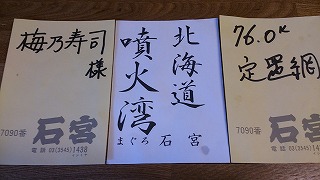 梅乃寿司
様
7090番
石宮
電話 03(3545)1438
北海道
噴火湾
まぐろ 石宮
76.0K
定置網
7090番
石宮
電話 03(3545)1438